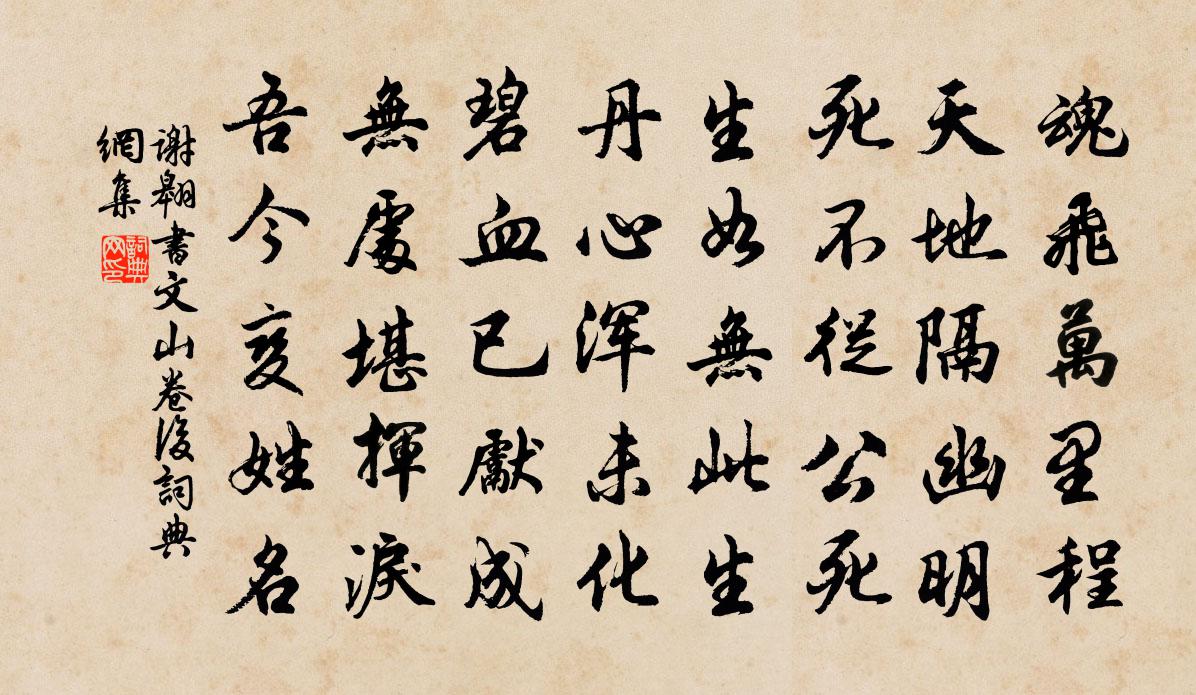 魂飛萬里程
天地隔幽明
死不從公死
生如無此生
丹心渾未化
碧血已獻成
無處堪揮淚
吾今變姓名
謝翱書文山卷後詞典
網集
詞典
网印